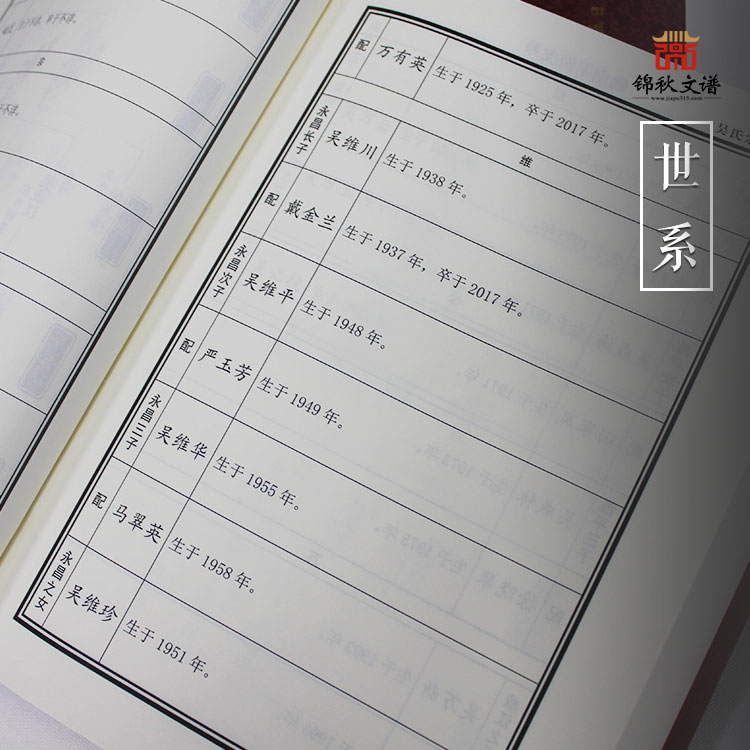 锦秋文谱
www.jiapu315.com
世系
吴氏
配 万有英 生于 1925 年，卒于 2017 年。
维
永昌长子 吴维川 生于 1938 年。
配 戴金兰 生于 1937 年，卒于 2017 年。
永昌次子 吴维平 生于 1948 年。
配 严玉芳 生于 1949 年。
永昌三子 吴维华 生于 1955 年。
配 马翠英 生于 1958 年。
永昌之女 吴维珍 生于 1951 年。